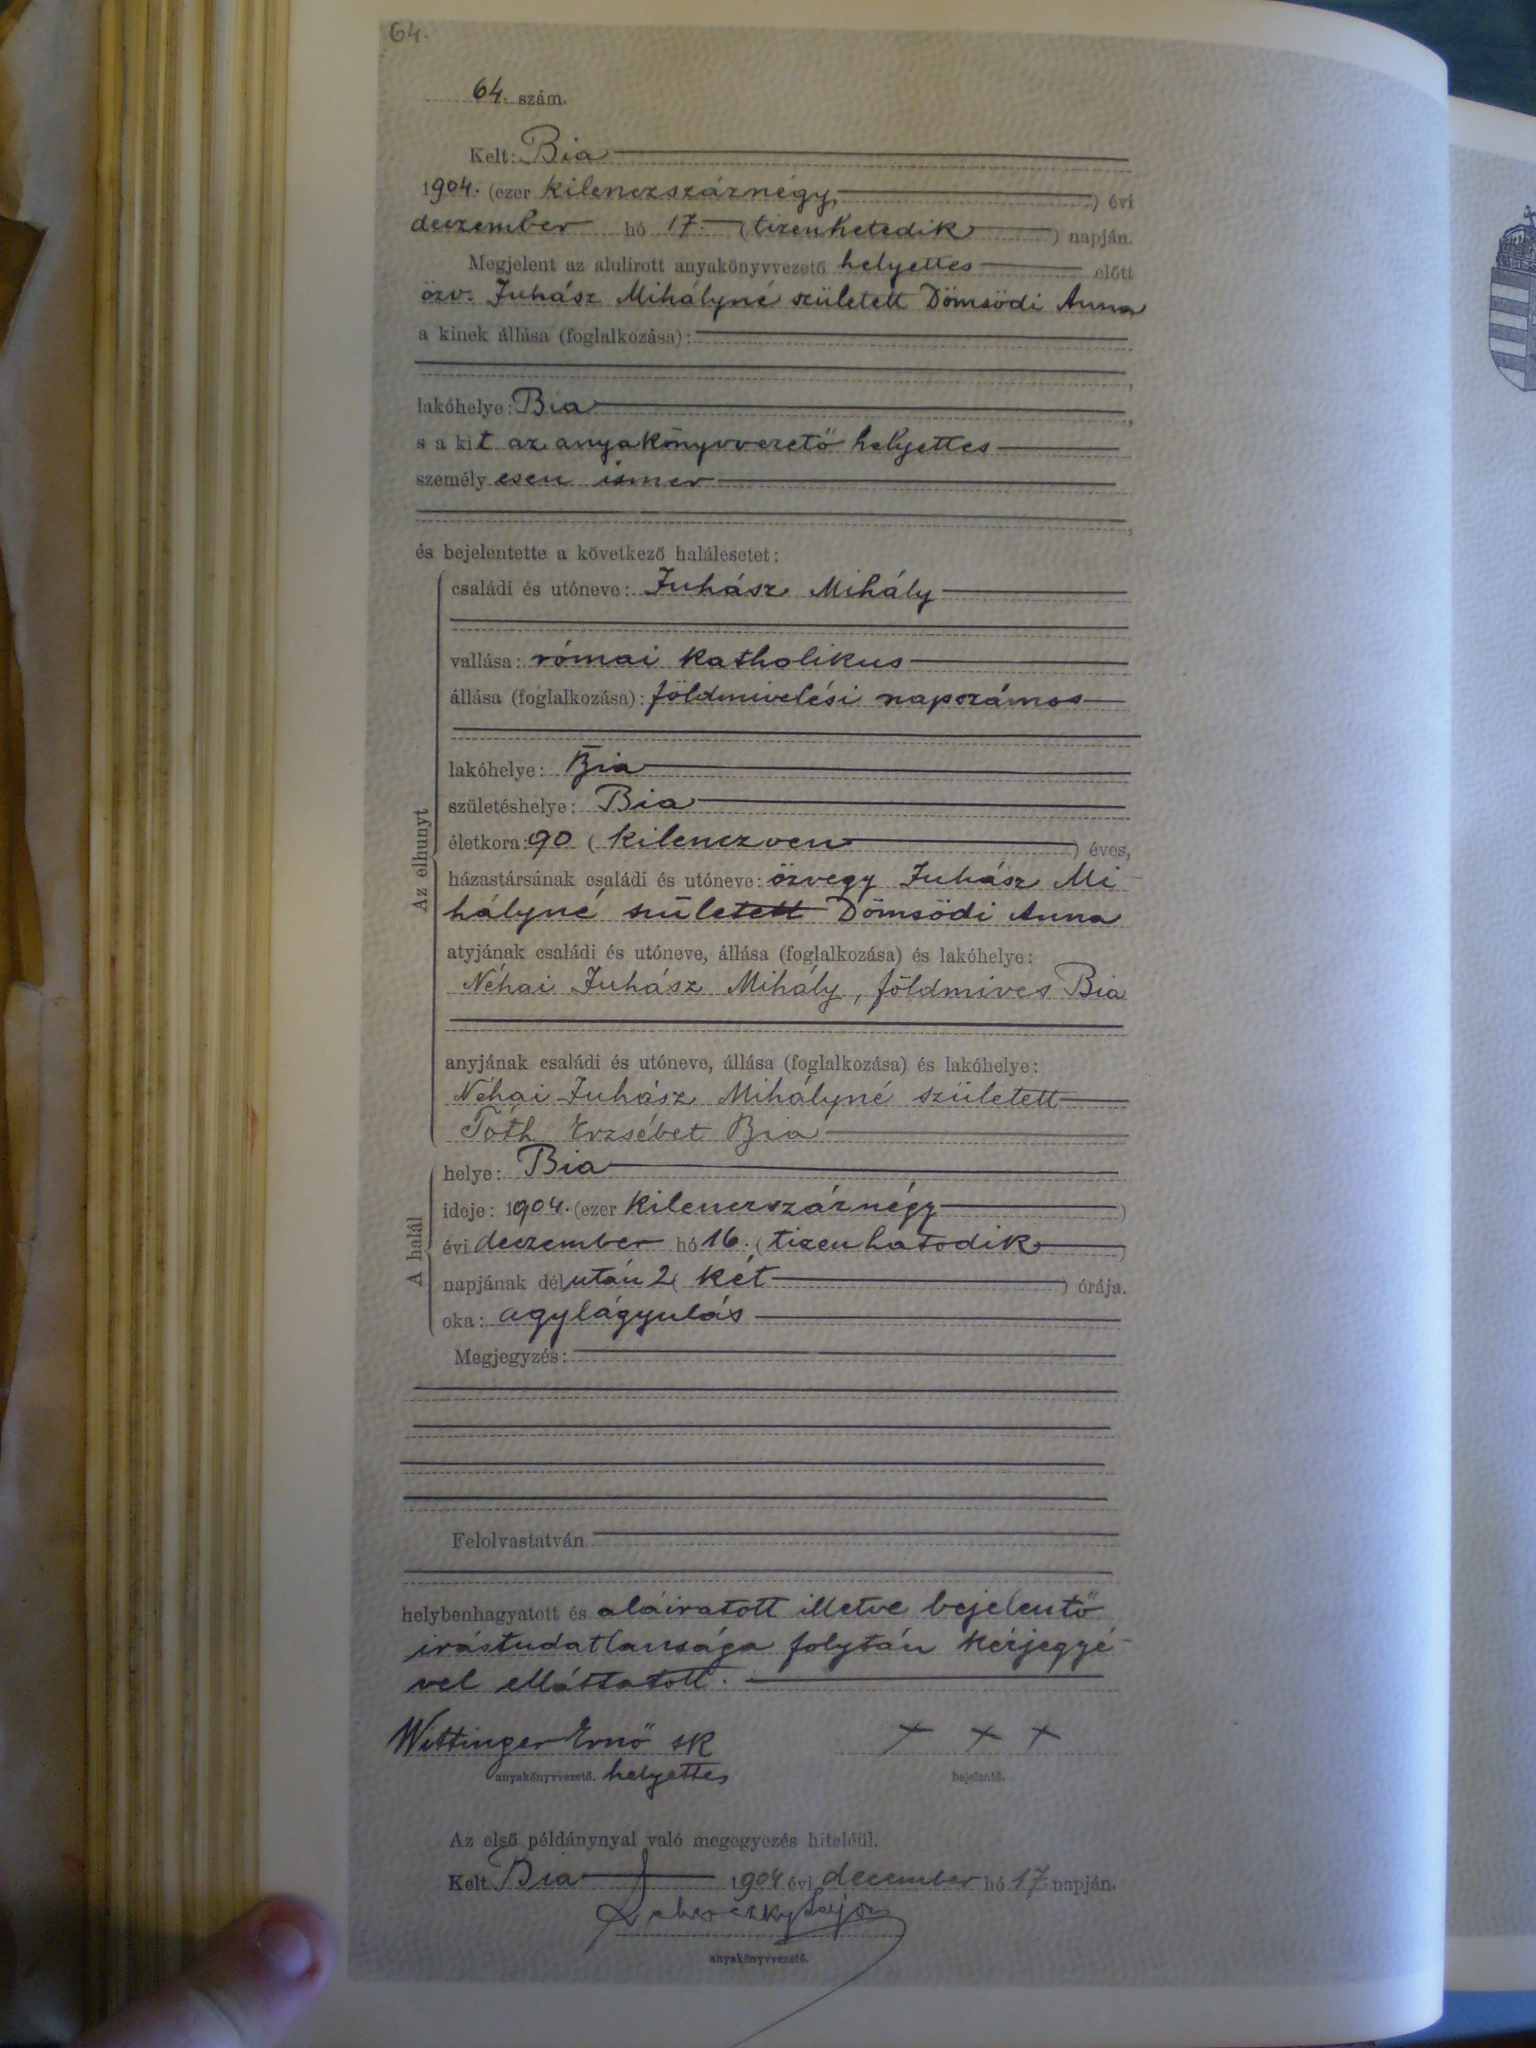 64.
64. szám.
Kelt: Bia
1904. (ezer kilenczszáznégy) évi
deczember hó 17 (tizenhetedik) napján.
Megjelent az alulirott anyakönyvvezető helyettes előtt
özv. Juhász Mihályné született Dömsödi Anna
a kinek állása (foglalkozása):
,
lakóhelye: Bia,
s a kit az anyakönyvvezető helyettes
személyesen ismer
,
és bejelentette a következő halálesetet:
Az elhunyt
családi és utóneve: Juhász Mihály
vallása: római katholikus
állása (foglalkozása): földmivelési napszámos
lakóhelye: Bia
születéshelye: Bia
életkora: 90 (kilenczven) éves,
házastársának családi és utóneve: özvegy Juhász Mi-
hályné született Dömsödi Anna
atyjának családi és utóneve, állása (foglalkozása) és lakóhelye:
Néhai Juhász Mihály, földmives Bia
anyjának családi és utóneve, állása (foglalkozása) és lakóhelye:
Néhai Juhász Mihályné született
Tóth Erzsébet Bia
A halál
helye: Bia
ideje: 1904. (ezer kilenczszáznégy)
évi deczember hó 16. (tizenhatodik)
napjának délután 2 (két) órája.
oka: agylágyulás
Megjegyzés:
Felolvastatván
helybenhagyatott és aláiratott illetve bejelentő
irástudatlansága folytán kézjegyé-
vel elláttatott.
Wittinger Ernő sk + + +
anyakönyvvezető. helyettes bejelentő.
Az első példánynyal való megegyezés hiteléül.
Kelt Bia 1904 évi december hó 17. napján.
anyakönyvvezető.